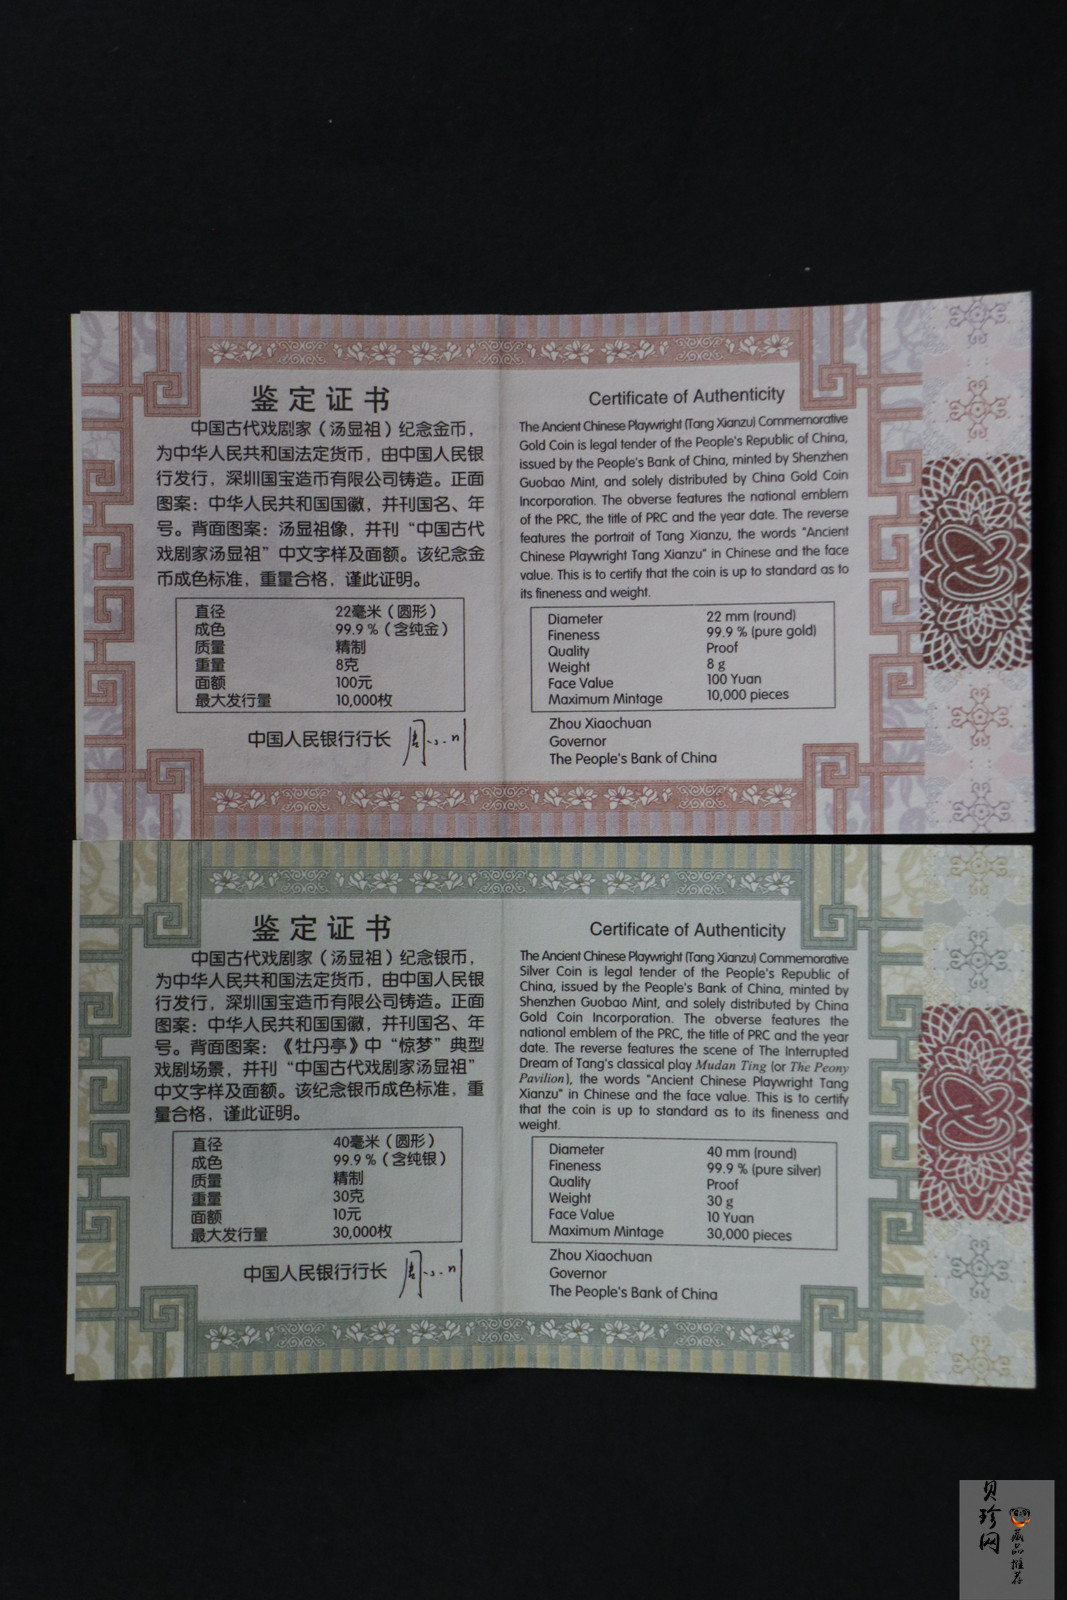 鉴定证书
中国古代戏剧家（汤显祖）纪念金币，
为中华人民共和国法定货币，由中国人民银
行发行，深圳国宝造币有限公司铸造。正面
图案：中华人民共和国国徽，并刊国名、年
号。背面图案：汤显祖像，并刊“中国古代
戏剧家汤显祖”中文字样及面额。该纪念金
币成色标准，重量合格，谨此证明。
直径 22毫米（圆形）
成色 99.9％（含纯金）
质量 精制
重量 8克
面额 100元
最大发行量 10,000枚
中国人民银行行长 周小川
Certificate of Authenticity
The Ancient Chinese Playwright (Tang Xianzu) Commemorative
Gold Coin is legal tender of the People's Republic of China,
issued by the People's Bank of China, minted by Shenzhen
Guobao Mint, and solely distributed by China Gold Coin
Incorporation. The obverse features the national emblem
of the PRC, the title of PRC and the year date. The reverse
features the portrait of Tang Xianzu, the words "Ancient
Chinese Playwright Tang Xianzu" in Chinese and the face
value. This is to certify that the coin is up to standard as to
its fineness and weight.
Diameter 22 mm (round)
Fineness 99.9 % (pure gold)
Quality Proof
Weight 8 g
Face Value 100 Yuan
Maximum Mintage 10,000 pieces
Zhou Xiaochuan
Governor
The People's Bank of China
鉴定证书
中国古代戏剧家（汤显祖）纪念银币，
为中华人民共和国法定货币，由中国人民银
行发行，深圳国宝造币有限公司铸造。正面
图案：中华人民共和国国徽，并刊国名、年
号。背面图案：《牡丹亭》中“惊梦”典型
戏剧场景，并刊“中国古代戏剧家汤显祖”
中文字样及面额。该纪念银币成色标准，重
量合格，谨此证明。
直径 40毫米（圆形）
成色 99.9％（含纯银）
质量 精制
重量 30克
面额 10元
最大发行量 30,000枚
中国人民银行行长 周小川
Certificate of Authenticity
The Ancient Chinese Playwright (Tang Xianzu) Commemorative
Silver Coin is legal tender of the People's Republic of
China, issued by the People's Bank of China, minted by
Shenzhen Guobao Mint, and solely distributed by China
Gold Coin Incorporation. The obverse features the
national emblem of the PRC, the title of PRC and the year
date. The reverse features the scene of The Interrupted
Dream of Tang's classical play Mudan Ting (or The Peony
Pavilion), the words "Ancient Chinese Playwright Tang
Xianzu" in Chinese and the face value. This is to certify
that the coin is up to standard as to its fineness and
weight.
Diameter 40 mm (round)
Fineness 99.9 % (pure silver)
Quality Proof
Weight 30 g
Face Value 10 Yuan
Maximum Mintage 30,000 pieces
Zhou Xiaochuan
Governor
The People's Bank of China
贝珍网
藏品推荐